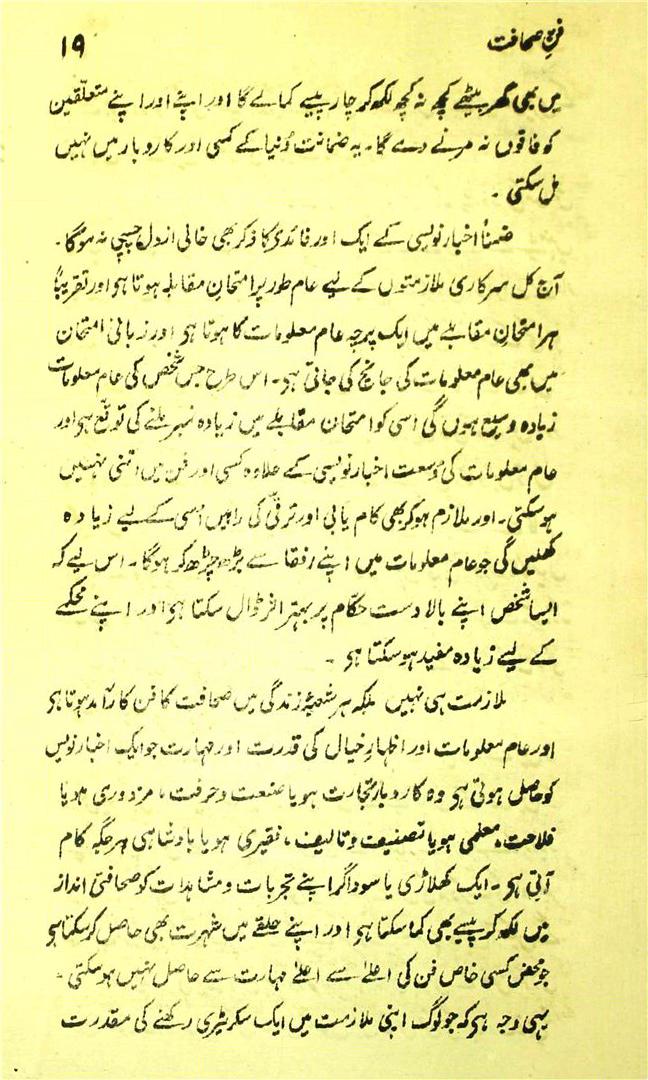 فنِ صحافت ۱۹
میں بھی گھر بیٹھے کچھ نہ کچھ لکھ کر چار پیسے کمالے گا اور اپنے اور اپنے متعلّقین
کو فاقوں نہ مرنے دے گا۔ یہ ضمانت دُنیا کے کسی اور کاروبار میں نہیں
مل سکتی۔
ضمناً اخبار نویسی کے ایک اور فائدی کا ذکر بھی خالی از دل چسپی نہ ہوگا۔
آج کل سرکاری ملازمتوں کے لیے عام طور پر امتحانِ مقابلہ ہوتا ہی اور تقریباً
ہر امتحانِ مقابلے میں ایک پرچہ عام معلومات کا ہوتا ہی اور زبانی امتحان
میں بھی عام معلومات کی جانچ کی جاتی ہی۔ اس طرح جس شخص کی عام معلومات
زیادہ وسیع ہوں گی اسی کو امتحان مقابلے میں زیادہ نمبر ملنے کی توقّع ہی اور
عام معلومات کی وُسعت اخبار نویسی کے علاوہ کسی اور فن میں اتنی نہیں
ہوسکتی۔ اور ملازم ہوکر بھی کام یابی اور ترقّی کی راہیں اُسی کے لیے زیادہ
کھلیں گی جو عام معلومات میں اپنے رفقا سے بڑھ چڑھ کر ہوگا۔ اس لیے کہ
ایسا شخص اپنے بالا دست حکّام پر بہتر اثر ڈال سکتا ہی اور اپنے محکمے
کے لیے زیادہ مفید ہوسکتا ہی۔
ملازمت ہی نہیں بلکہ ہر شعبۂ زندگی میں صحافت کا فن کارآمد ہوتا ہی
اور عام معلومات اور اظہارِ خیال کی قدرت اور مہارت جو ایک اخبار نویس
کو حاصل ہوتی ہی وہ کاروبار تجارت ہو یا صنعت و حرفت، مزدوری ہو یا
فلاحت، معلمی ہو یا تصنیف و تالیف، فقیری ہو یا بادشاہی ہر جگہ کام
آتی ہی۔ ایک کھلاڑی یا سوداگر اپنے تجربات و مشاہدات کو صحافتی انداز
میں لکھ کر پیسے بھی کما سکتا ہی اور اپنے حلقے میں شہرت بھی حاصل کرسکتا ہی
جو محض کسی خاص فن کی اعلیٰ سے اعلیٰ مہارت سے حاصل نہیں ہوسکتی۔
یہی وجہ ہی کہ جو لوگ اپنی ملازمت میں ایک سکریٹری رکھنے کی مقدرت